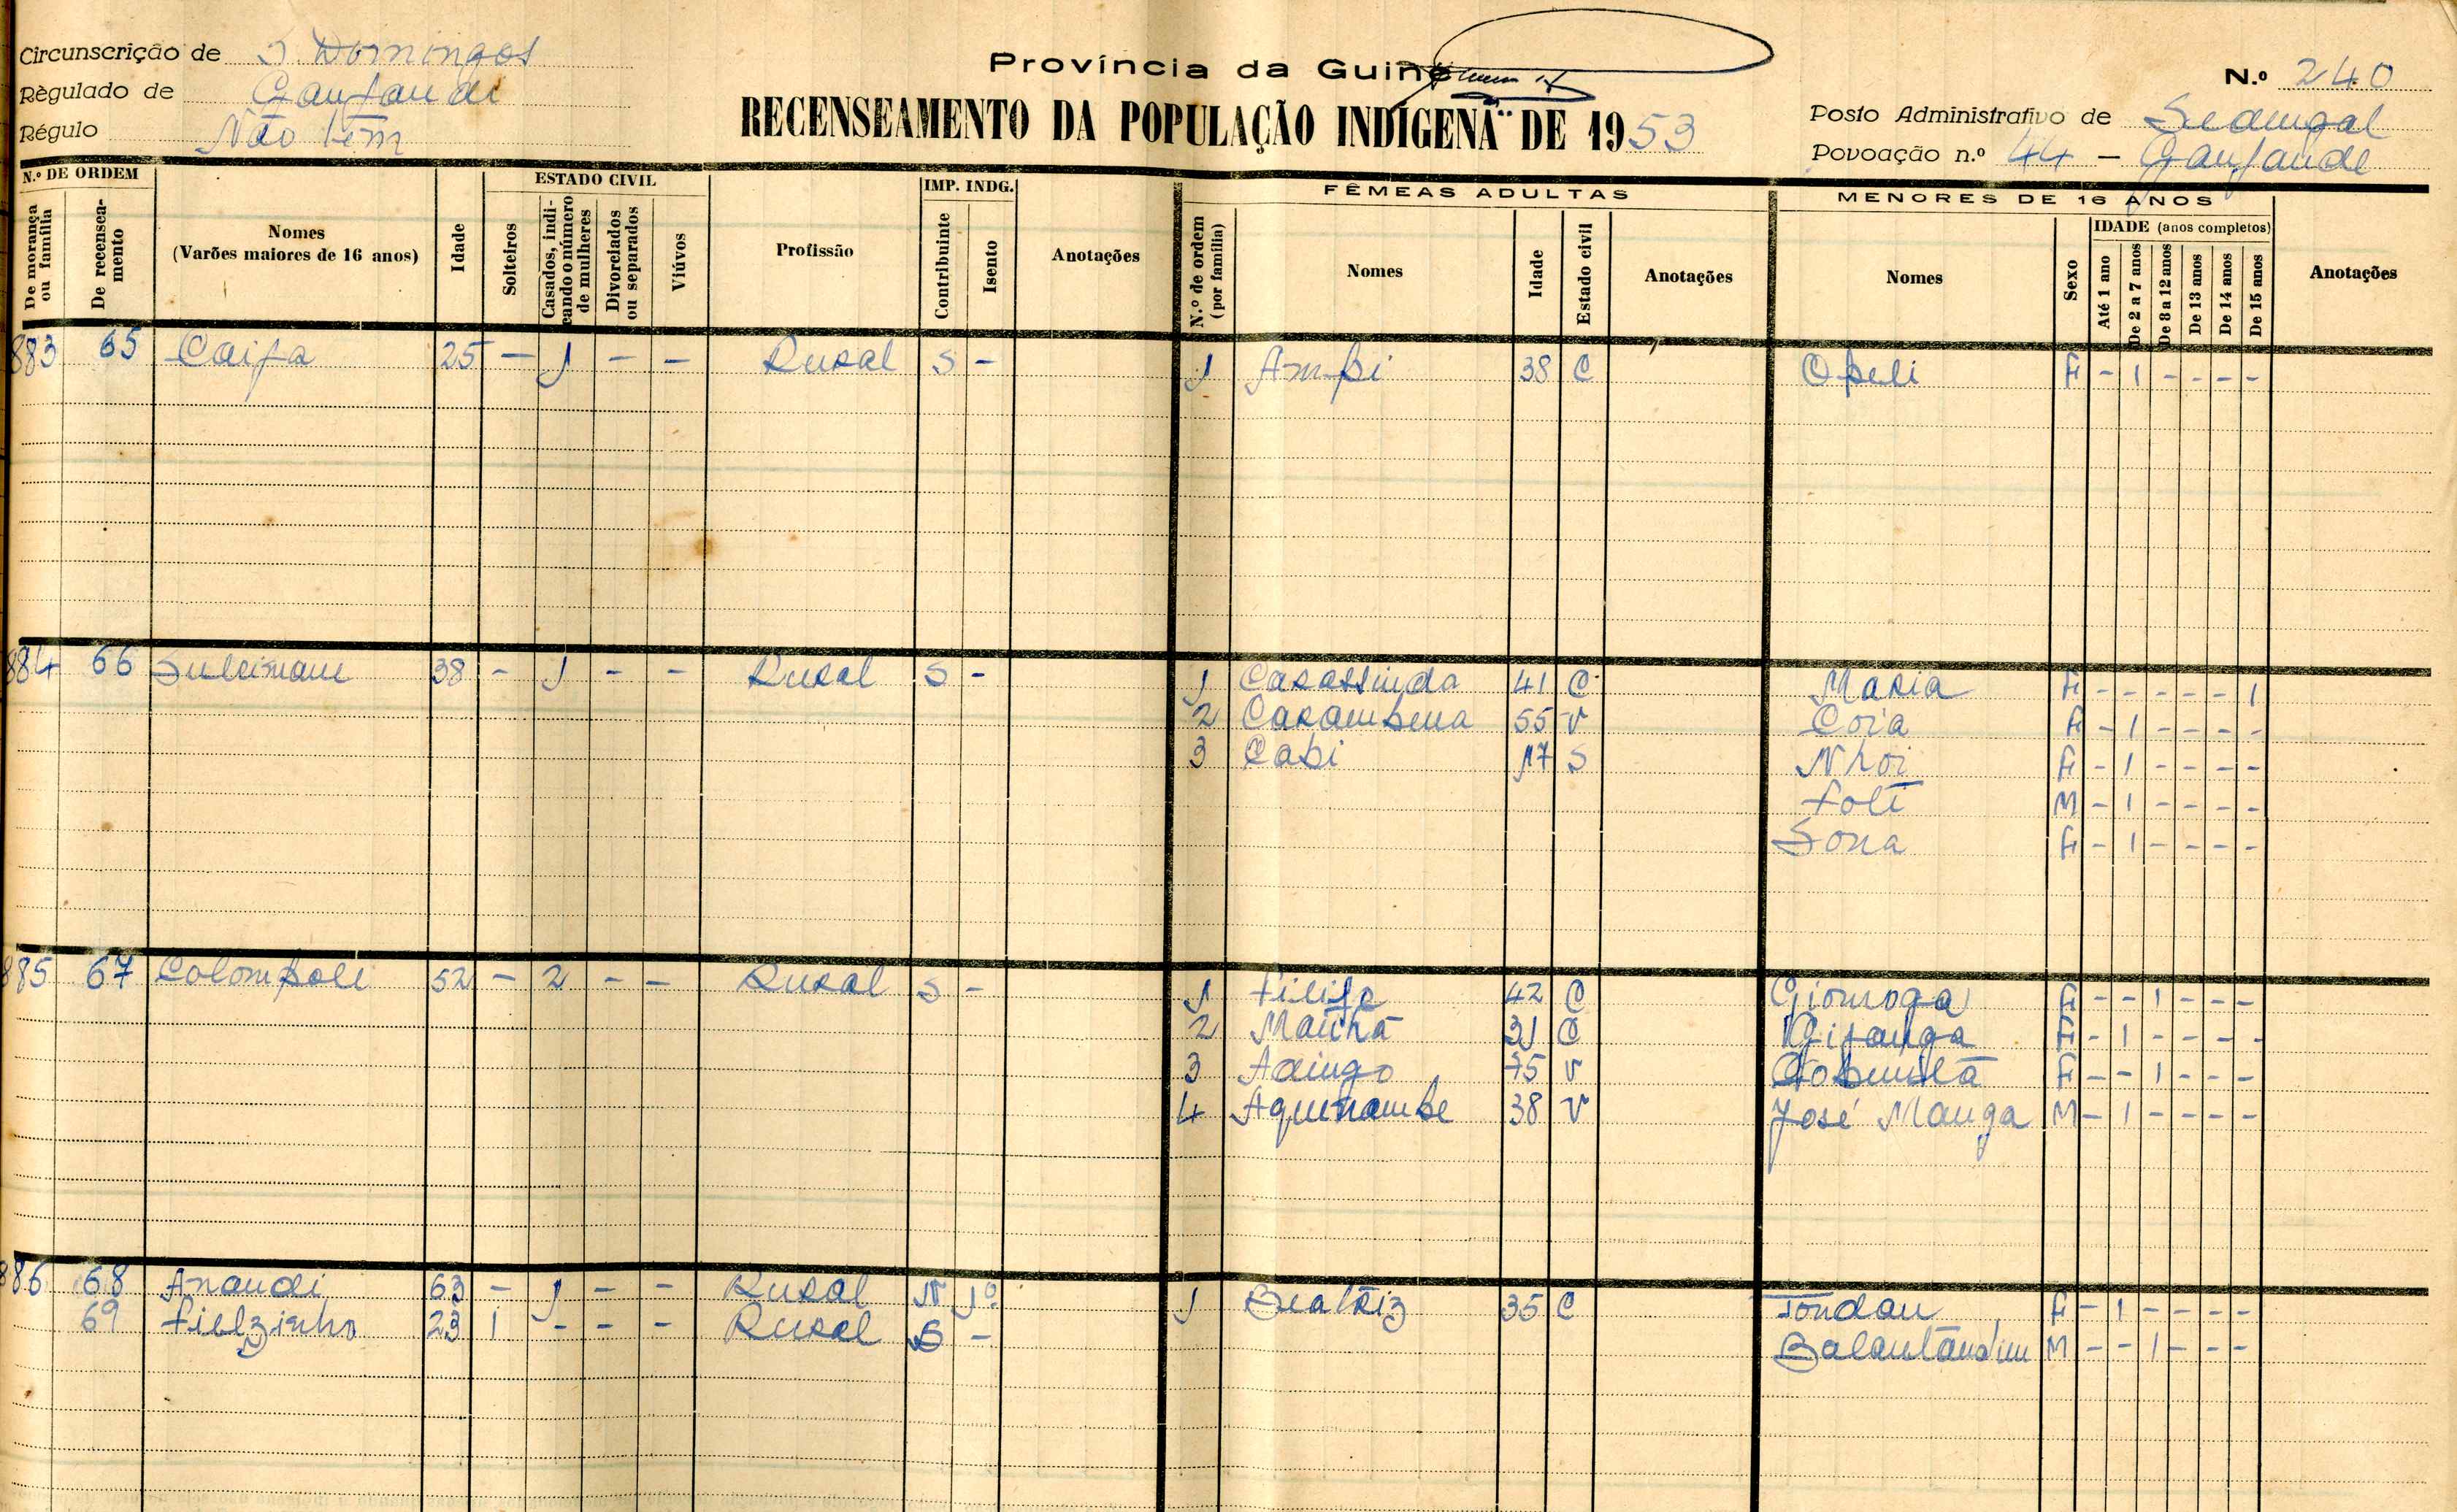 Circunscrição de S. Domingos
Règulado de
Régulo Não tem
Província da Guiné
RECENSEAMENTO DA POPULAÇÃO INDÍGENA DE 1953
N.º 240
Posto Administrativo de Sedengal
Povoação n.º 44 -
N.º DE ORDEM
De morança ou família
De recenseamento
Nomes
(Varões maiores de 16 anos)
Idade
ESTADO CIVIL
Solteiros
Casados, indicando o número de mulheres
Divorciados ou separados
Viúvos
Profissão
IMP. INDG.
Contribuinte
Isento
Anotações
FÊMEAS ADULTAS
N.º de ordem (por família)
Nomes
Idade
Estado civil
Anotações
MENORES DE 16 ANOS
Nomes
Sexo
IDADE (anos completos)
Até 1 ano
De 2 a 7 anos
De 8 a 12 anos
De 13 anos
De 14 anos
De 15 anos
Anotações
883 65 Caifa 25 - 1 - - Rural S - 1 Ambi 38 C Opeli F - 1 - - - -
884 66 Suleimane 38 - 1 - - Rural S - 1 Carassinda 41 C Maria F - - - - - 1
2 Carambena 55 V Coia F - 1 - - - -
3 Cabi 17 S Nhoi F - 1 - - - -
M - 1 - - - -
Sona F - 1 - - - -
885 67 52 - 2 - - Rural S - 1 42 C F - - 1 - - -
2 31 C F - 1 - - - -
3 75 V F - - 1 - - -
4 38 V José Manga M - 1 - - - -
886 68 63 - 1 - - Rural N 1º 1 Beatriz 35 C F - 1 - - - -
69 Fielzinho 23 1 - - - Rural S - M - - 1 - - -